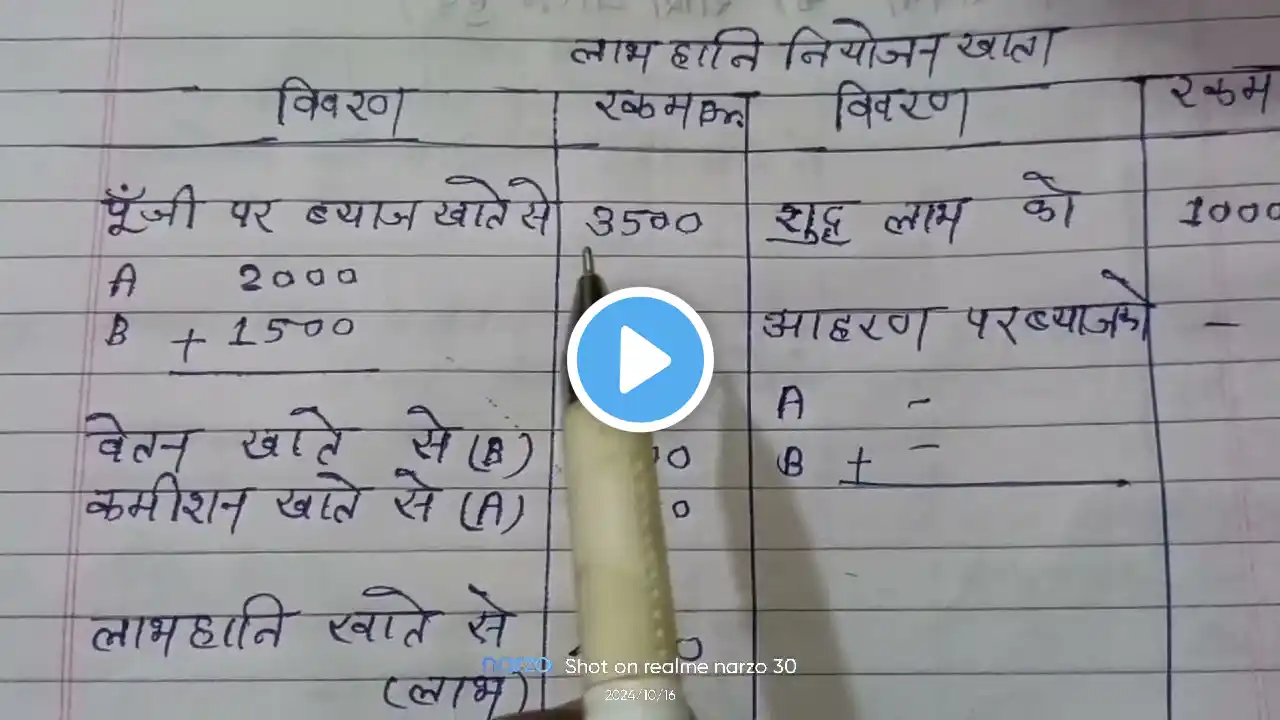 लाभ हानि नियोजन खाता
विवरण रकम विवरण रकम
पूँजी पर ब्याज खाते से 3500 शुद्ध लाभ को 1000
A 2000
B + 1500 आहरण पर ब्याज को -
A -
वेतन खाते से (B) B + -
कमीशन खाते से (A)
लाभ हानि खाते से
(लाभ)
narzo Shot on realme narzo 30
2024/10/16